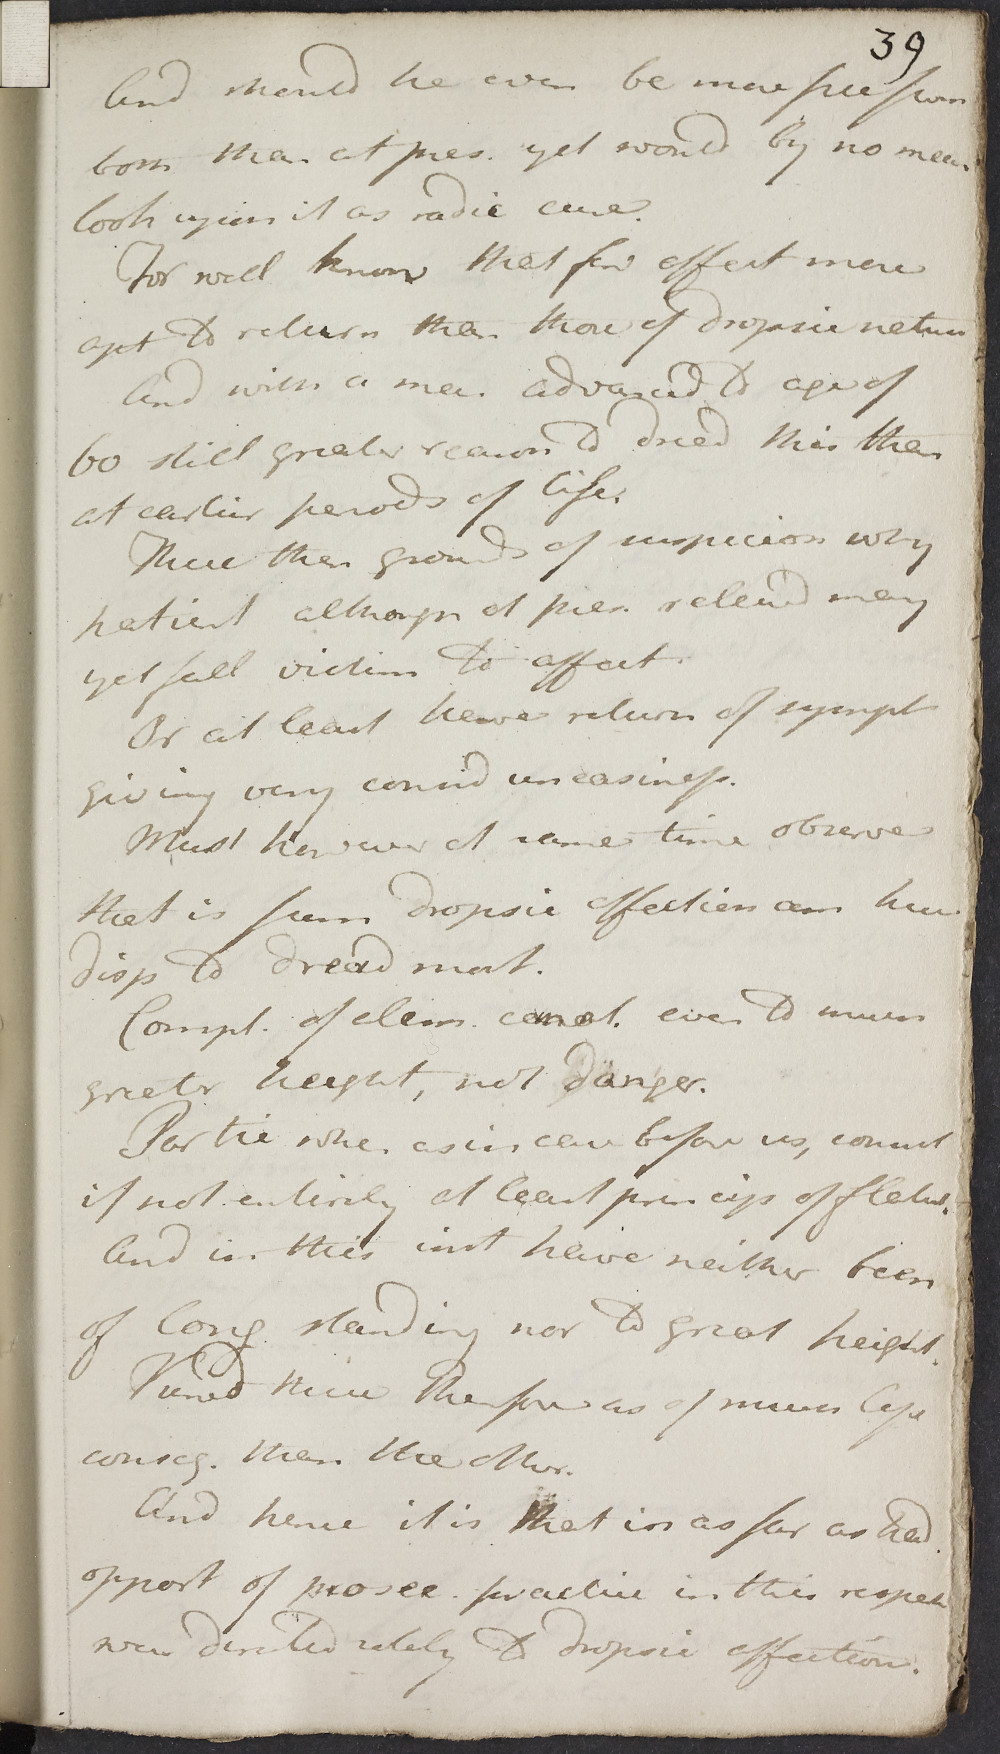 39
And should he even be more free from
both than at pres. yet would by no mean
look upon it as radic cure.
For well know that few affect more
apt to return than those of dropsic nature
And with a man advanced to age of
60 still greater reason to dread this than
at earlier periods of life.
There then grounds of suspicion why
patient although at pres. relievd may
yet fall victim to affect.
Or at least have return of sympt
giving very consid uneasiness.
Must however at same time observe
that is from dropsic affection am here
disp to dread most.
Compl. of alim. canal. even to much
greatr height, not danger.
Partic when as in case before us, consist
if not entirely at least princip of flatul.
And in this inst have neither been
of long standing nor to great height.
Viewd these therefore as of much less
conseq. than the other.
And hence it is that in as far as had
opport of prosec. practice in this respect
was directed solely to dropsic affection.